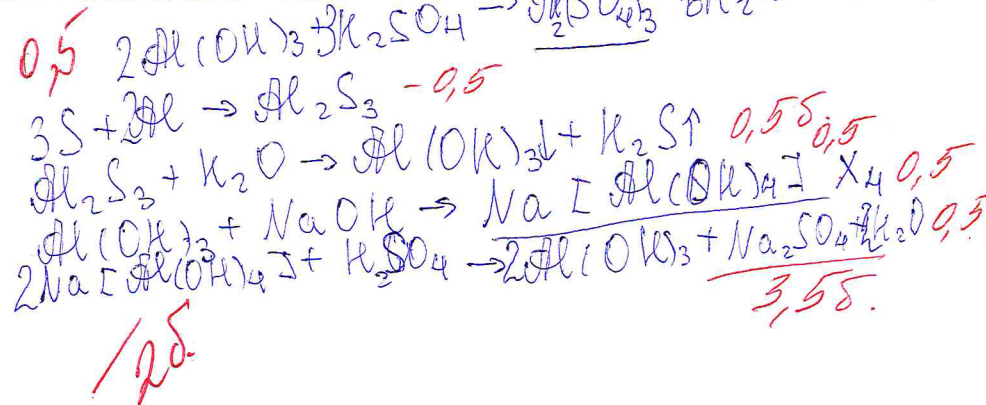 0,5 2Al(OH)3+3H2SO4→Al2(SO4)3
3S+2Al→Al2S3 -0,5
Al2S3+H2O→Al(OH)3↓+H2S↑ 0,5б 0,5
Al(OH)3+NaOH→Na[Al(OH)4] X4 0,5
2Na[Al(OH)4]+H2SO4→2Al(OH)3+Na2SO4+2H2O 0,5
3,5б.
2б.